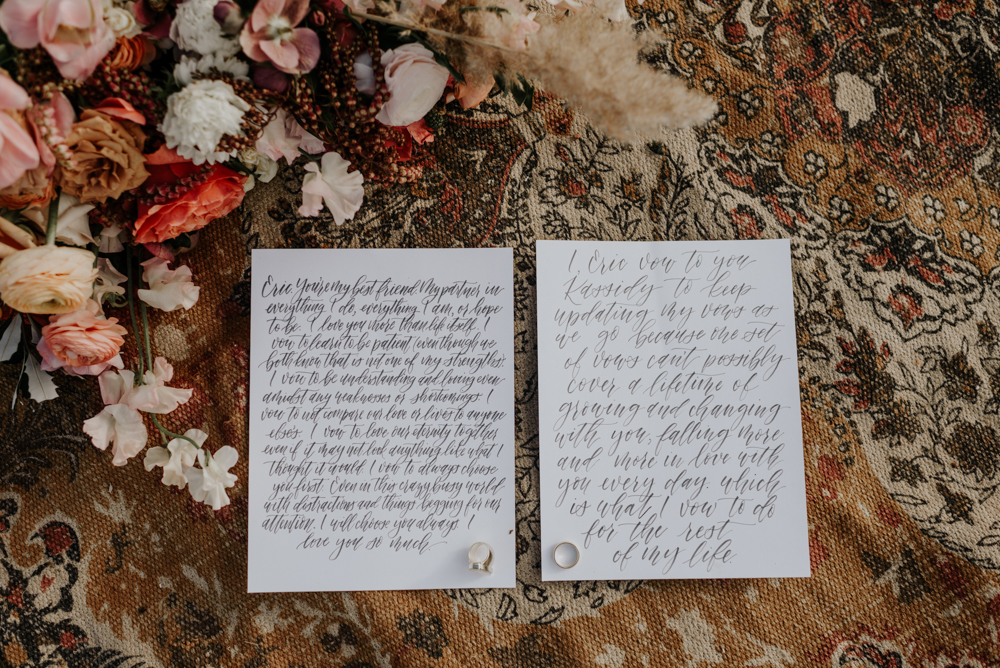 Eric, You're my best friend. My partner in
everything I do, everything I am, or hope
to be. I love you more than life itself. I
vow to learn to be patient (even though we
both know that is not one of my strengths).
I vow to be understanding and loving even
amidst any weaknesses or shortcomings. I
vow to not compare our love or lives to anyone
else's. I vow to love our eternity together
even if it may not look anything like what I
thought it would. I vow to always choose
you first. Even in this crazy busy world
with distractions and things begging for our
attention. I will choose you always. I
love you so much
I, Eric vow to you
Kassidy to keep
updating my vows as
we go because one set
of vows can't possibly
cover a lifetime of
growing and changing
with you, falling more
and more in love with
you every day. which
is what I vow to do
for the rest
of my life.